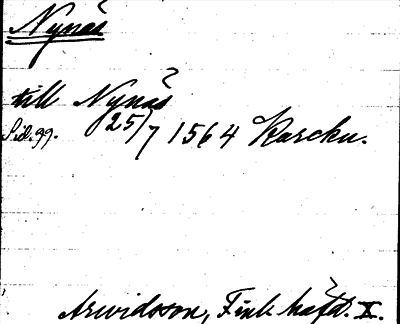 Nynäs
till Nynäs
Sid. 99. 25/7 1564 Karcku.
Arwidsson, Finl. häfd. X.